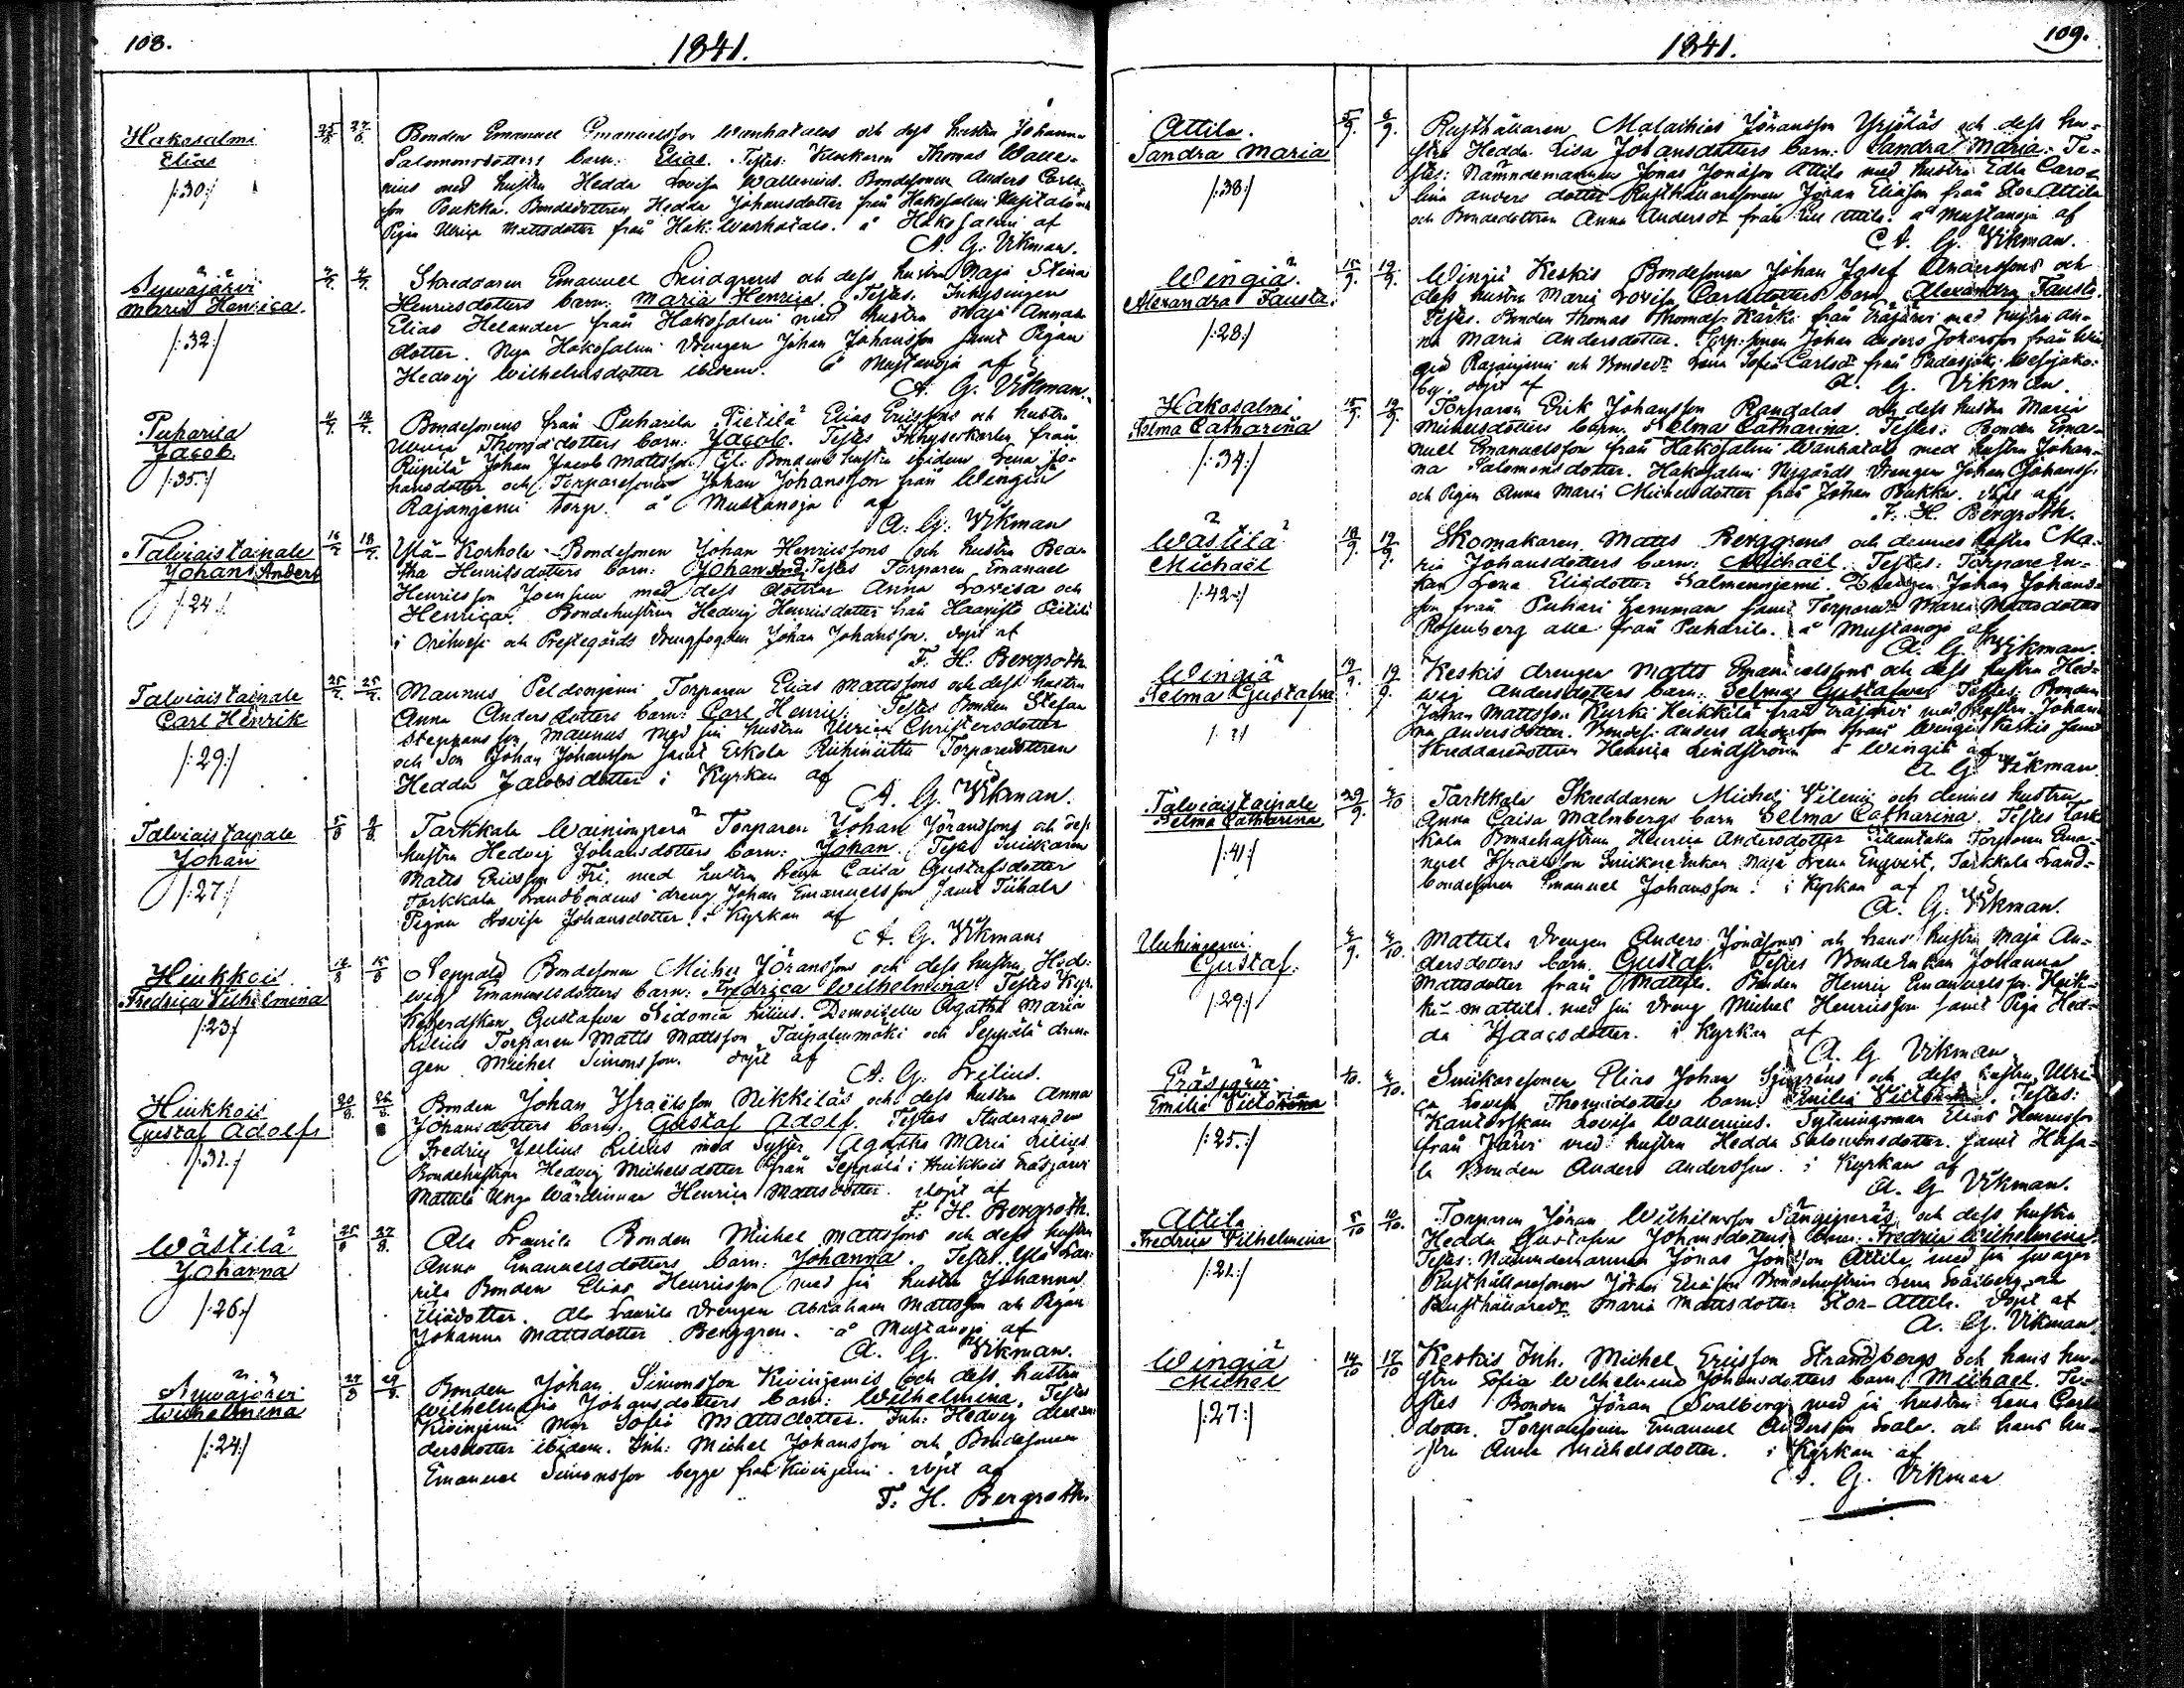 108.
1841.
Hakosalmi
Elias
/:30:/
25/6 27/6
Bonden Emanuel Emanuelsson Wanhatalos och dess hustru Johanna
Salomonsdotters barn: Elias. Testes: Klockaren Thomas Walle-
nius med hustru Hedda Lovisa Wallenius. Bondesonen Anders Carls-
son Pukka. Bondedottren Hedda Johansdotter från Hakosalmi
Pigan Ulrica Mattsdotter från Hak: Wanhatalo. å Hakosalmi af
A. G. Vikman.
Sywäjärvi
Maria Henrica.
/:32:/
4/7.
Skreddaren Emanuel Lindgrens och dess hustru Maja Stina
Henricsdotters barn: Maria Henrica. Testes. Inhysingen
Elias Helander från Hakosalmi med hustru Maja Annas
dotter. Nya Hakosalmi Drengen Johan Johansson samt Pigan
Hedvig Wilhelmsdotter ibidem. å Mustanoja af
A. G. Vikman.
Puharila
Jacob
/:35:/
Bondesonens från Puharila Pietilä Elias Ericssons och hustru
Ulrica Thomasdotters barn: Jacob. Testes Inhysekarlen från
Riipilä Johan Jacob Mattsson. Bondens hustru ibidem Lena Jo-
hansdotter och Torparesonen Johan Johansson från Wingiä
Rajaniemi Torp. å Mustanoja af
A. G. Vikman
Talviais taipale
Johan Anders
/:24:/
16/7 18/7.
Ylä-Korhola Bondesonen Johan Henricssons och hustru Bea-
tha Henriksdotters barn: Johan And: Testes Torparen Emanuel
Henricsson Joensuu med dess dotter Anna Lovisa och
Henrica. Bondehustrun Hedvig Henricsdotter från Haavisto
i Orihvesi och Prestegårds Drengfogden Johan Johansson. döpt af
F. H. Bergroth.
Talviais taipale
Carl Henrik
/:29:/
25/7. 25/7.
Maunus Peldoniemi Torparen Elias Mattssons och dess hustru
Anna Andersdotters barn: Carl Henric. Testes Bonden Stefan
Steffansson Maunus med sin hustru Ulrica Christersdotter
och Son Johan Johansson samt Eskola Torparedottren
Hedda Jacobsdotter i Kyrkan af
A. G. Vikman.
Talviais taipale
Johan
/:27:/
5/8 8/8.
Tarkkala Wainionperä Torparen Johan Jöranssons och dess
hustru Hedvig Johansdotters barn: Johan. Testes Snickaren
Matts Ericsson Fri med hustru Caisa Gustafsdotter
Tarkkala Landbondens dreng Johan Emanuelsson samt
Pigan Lovisa Johansdotter. i Kyrkan af
A. G. Vikman
Hiukkois
Fredrica Vilhelmina
/:23:/
Seppälä Bondesonen Michel Jöranssons och dess hustru Hed-
wig Emanuelsdotters barn: Fredrica Wilhelmina. Testes Kyr-
koherdskan Gustafva Sidonia Lilius. Demoiselle Agatha Maria
Lilius Torparen Matts Mattsson Taipalenmäki och Seppälä dren-
gen Michel Simonsson. döpt af
A. G. Lilius.
Hiukkois
Gustaf Adolf
/:32:/
20/8. 22/8.
Bonden Johan Israelsson Nikkiläs och dess hustru Anna
Johansdotters barn: Gustaf Adolf. Testes Studeranden
Fredric Julius Lilius med Syster Agatha Maria Lilius
Bondehustrun Hedvig Michelsdotter från Seppälä i Hiukkois
Mattila Unga Wärdinnan Henrica Mattsdotter. döpt af
F. H. Bergroth.
Wästilä
Johanna
/:26:/
25/8 27/8.
Ala Laurila Bonden Michel Mattssons och dess hustru
Anna Emanuelsdotters barn: Johanna. Testes Ylä Lau-
rila Bonden Elias Henricsson med sin hustru Johanna
Eliædotter. Ala Laurila Drengen Abraham Mattsson och Pigan
Johanna Mattsdotter Berggren. å Mustanoja af
A. G. Vikman.
Sywäjärvi
Wilhelmina
/:24:/
27/8 29/8.
Bonden Johan Simonsson Kiviniemis och dess hustru
Wilhelmina Johansdotters barn: Wilhelmina. Testes
Kiviniemi Mor Sofia Mattsdotter. Inh: Hedvig Alexan-
dersdotter ibidem. Inh: Michel Johansson och Bondesonen
Emanuel Simonsson begge från Kiviniemi. döpt af
F. H. Bergroth.
1841.
109.
Attila.
Sandra Maria
/:38:/
Rusthållaren Malachias Jöransson Yrjöläs och dess hu-
stru Hedda Lisa Johansdotters barn: Sandra Maria. Te-
stes: Nämndemannen Jonas Jonasson Attila med hustru Edla Caro-
lina Andersdotter Rusthållaresonen Jöran Eliasson från Attila
och Bondedottren Anna Andersdr från Attila. å Mustanoja af
A. G. Vikman.
Wingiä
Alexandra Fausta.
/:28:/
15/9. 19/9.
Wingiä Keskis Bondesonen Johan Josef Anderssons och
dess hustru Maria Lovisa Carlsdotters barn Alexandra Fausta.
Testes. Bonden Thomas Thomass: Karki från Eräjärvi med hustru An-
na Maria Andersdotter. Torp: sonen Johan Anders Johansson från Win-
giä Rajaniemi och Bondedr Lena Sofia Carlsdr från Padasjoki
by. döpt af A. G. Vikman.
Hakosalmi
Selma Catharina
/:34:/
15/9. 19/9.
Torparen Erik Johansson Randalas och dess hustru Maria
Michelsdotters barn. Selma Catharina. Testes: Bonden Ema-
nuel Emanuelsson från Hakosalmi Wanhatalo med hustru Johan-
na Salomonsdotter. Hakosalmi Nygårds Drengen Johan Johanss:
och Pigan Anna Maria Michelsdotter från Johan Pukka. döpt af
F. H. Bergroth.
Wästilä
Michaël
/:42:/
18/9 19/9.
Skomakaren Matts Berggrens och dennes hustru Ma-
ria Johansdotters barn: Michaël. Testes: Torpare En-
kan Lena Eliædotter Salmenniemi. Drengen Johan Johans-
son från Puhari Lamman samt Torparedr Maria Mattsdotter
Rosenberg alla från Puharila. å Mustanoja af
A. G. Vikman.
Wingiä
Selma Gustafva
/: ?:/
Keskis drengen Matts Emanuelssons och dess hustru Hed-
wig Andersdotters barn: Selma Gustafva Testes: Bonden
Johan Mattsson Kurki Heikkilä från Eräjärvi med hustru Johan-
na Andersdotter. Bondes: Anders Andersson från Wingiä Keskis samt
Skreddaredottren Henrica Lindström å Wingiä af
A. G. Vikman.
Talviais taipale
Selma Catharina
/:41:/
29/9. 4/10
Tarkkala Skreddaren Michel Vilenii och dennes hustru
Anna Caisa Malmbergs barn Selma Catharina. Testes Tark-
kala Bondehustrun Henrica Andersdotter Torparen Ema-
nuel Israelsson Snickare Enkan Maja Lena Engvist, Tarkkala Land-
bondesonen Emanuel Johansson. i Kyrkan af
A. G. Vikman.
Uuhiniemi
Gustaf.
/:29:/
Mattila Drengen Anders Jönssons och hans hustru Maja An-
dersdotters barn. Gustaf. Testes Bonde Enkan Johanna
Mattsdotter från Mattila. Bonden Henric Emanuelsson Heik-
ki-Mattila med sin Dreng Michel Henricsson samt Piga Hed-
da Isaacsdotter. i Kyrkan af
A. G. Vikman
Emilia Victorina
/:25:/
Snickaresonen Elias Johan och dess hustru Ulri-
ca Lovisa Thomasdotters barn: Emilia Victorina. Testes:
Kantorskan Lovisa Wallenius. Sytningsman Elias Henricsson
från Järvi med hustru Hedda Salomonsdotter. samt Hassa-
la Bonden Anders Andersson. i Kyrkan af
A. G. Vikman.
Attila
Fredrica Vilhelmina
/:21:/
5/10 10/10.
Torparen Jöran Wilhelmsson och dess hustru
Hedda Gustafva Johansdotters barn: Fredrica Wilhelmina
Testes: Nämndemannen Jonas Jonasson Attila, med sin swåger
Rusthållaresonen Jöran Eliasson Bondehustrun Lena
Rusthållaredr Maria Mattsdotter Stor-Attila. Döpt af
A. G. Vikman.
Wingiä
Michel
/:27:/
14/10 17/10
Keskis Inh. Michel Ericsson Strandbergs och hans hu-
stru Sofia Wilhelmina Johansdotters barn: Michael. Te-
stes Bonden Jöran Svalberg med sin hustru Lena Carls-
dotter. Torparesonen Emanuel Andersson och hans hu-
stru Anna Michelsdotter. i Kyrkan af
A. G. Vikman